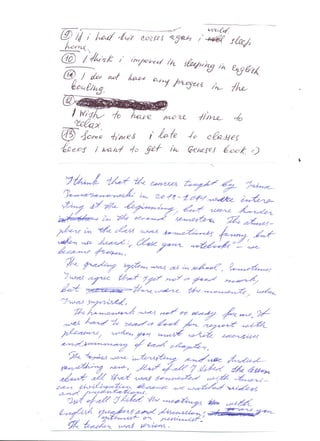 would
⑨ If i had this courses again i sleep
home.
⑩ I think i improved in sleeping in English
⑪ I dos not have any progress in the
bouling.
⑫
I wish to have more time to
relax
⑬ Some times i late to classes
I want to get in Geneses book :-)
I think that the courses taught by
in 2013-2014 were intere
sting at the beginning, but were harder
in the second semester. The atmos-
phere in the class was sometimes funny, but
when we heard: „Close your notebook" - we
became frozen.
The grading system was as in school. Sometimes
I was agree that I get not a good mark,
but there were the moments, when
I was surprised.
The homework was not so ready for me. It
was hard to read a book for report with
pleasure, when you must write exercises
and summary of each chapter.
The topics were interesting and
something new. Most of all I liked the lesson
about all that was connected with
can civilization because we watched videos
and presentations.
Best of all I liked the meetings with
English speakers and discussions
The teacher was serious.